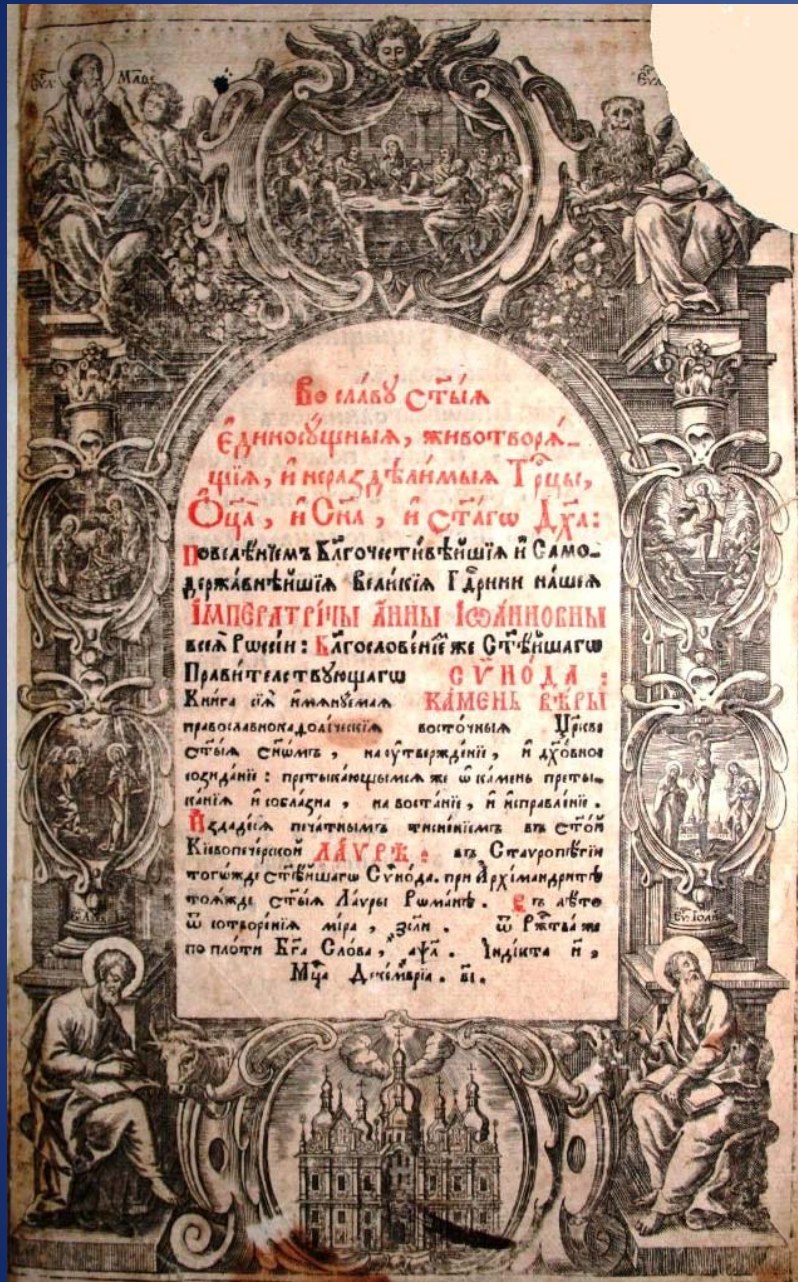 Еѵл: Матѳ:
Еѵл:
Во сла́вꙋ ст҃ы́ѧ
Є҆диносꙋ́щныѧ, животворѧ́‑
щїѧ, и҆ нераздѣли́мыѧ Трⷪ҇цы,
Ѻ҆ц҃а̀, и҆ Сн҃а, и҆ ст҃а́гѡ Дх҃а:
Повелѣ́нїемъ Бл҃гочести́вѣйшїѧ и҆ Само‑
держа́внѣйшїѧ Вели́кїѧ Гдⷭ҇рни на́шеѧ
І҆МПЕРАТРІ́ЦЫ А҆́ННЫ І҆ѠА́ННОВНЫ
всеѧ̀ Рѡссі́и: Бл҃гослове́нїе же Ст҃ѣ́йшагѡ
Прави́телствꙋющагѡ СѴНО́ДА :
Кни́га сїѧ̀ и҆мянꙋ́емаѧ КА́МЕНЬ ВѢ́РЫ
православнокаѳоли́ческїѧ восто́чныѧ Цр҃кве
ст҃ы́ѧ сн҃ѡ́мъ , на ᲂу҆твержде́нїе , и҆ дх҃о́вное
созида́нїе : претыка́ющымсѧ же ѡ҆ ка́мень преты‑
ка́нїѧ и҆ собла́зна , на воста́нїе , и҆ и҆справле́нїе .
И҆здаде́сѧ печа́тнымъ тисне́нїемъ въ ст҃о́й
Кїевопече́рской ЛА́ѴРѢ : въ Ставропи́гїи
тогѡ́жде ст҃ѣ́йшагѡ Сѵно́да. при А҆рхїмандри́тѣ
тоѧ́жде ст҃ы́ѧ Ла́ѵры Рѡма́нѣ. Въ лѣ́то
ѿ сотворе́нїѧ мі́ра , ҂зсли . ѿ Ржⷭ҇тва́ же
по пло́ти Бг҃а Сло́ва , ҂аѱл . І҆нді́кта и҃ ,
Мцⷭ҇а Деке́мврїа . в҃і .
Еѵ: Іѡан: